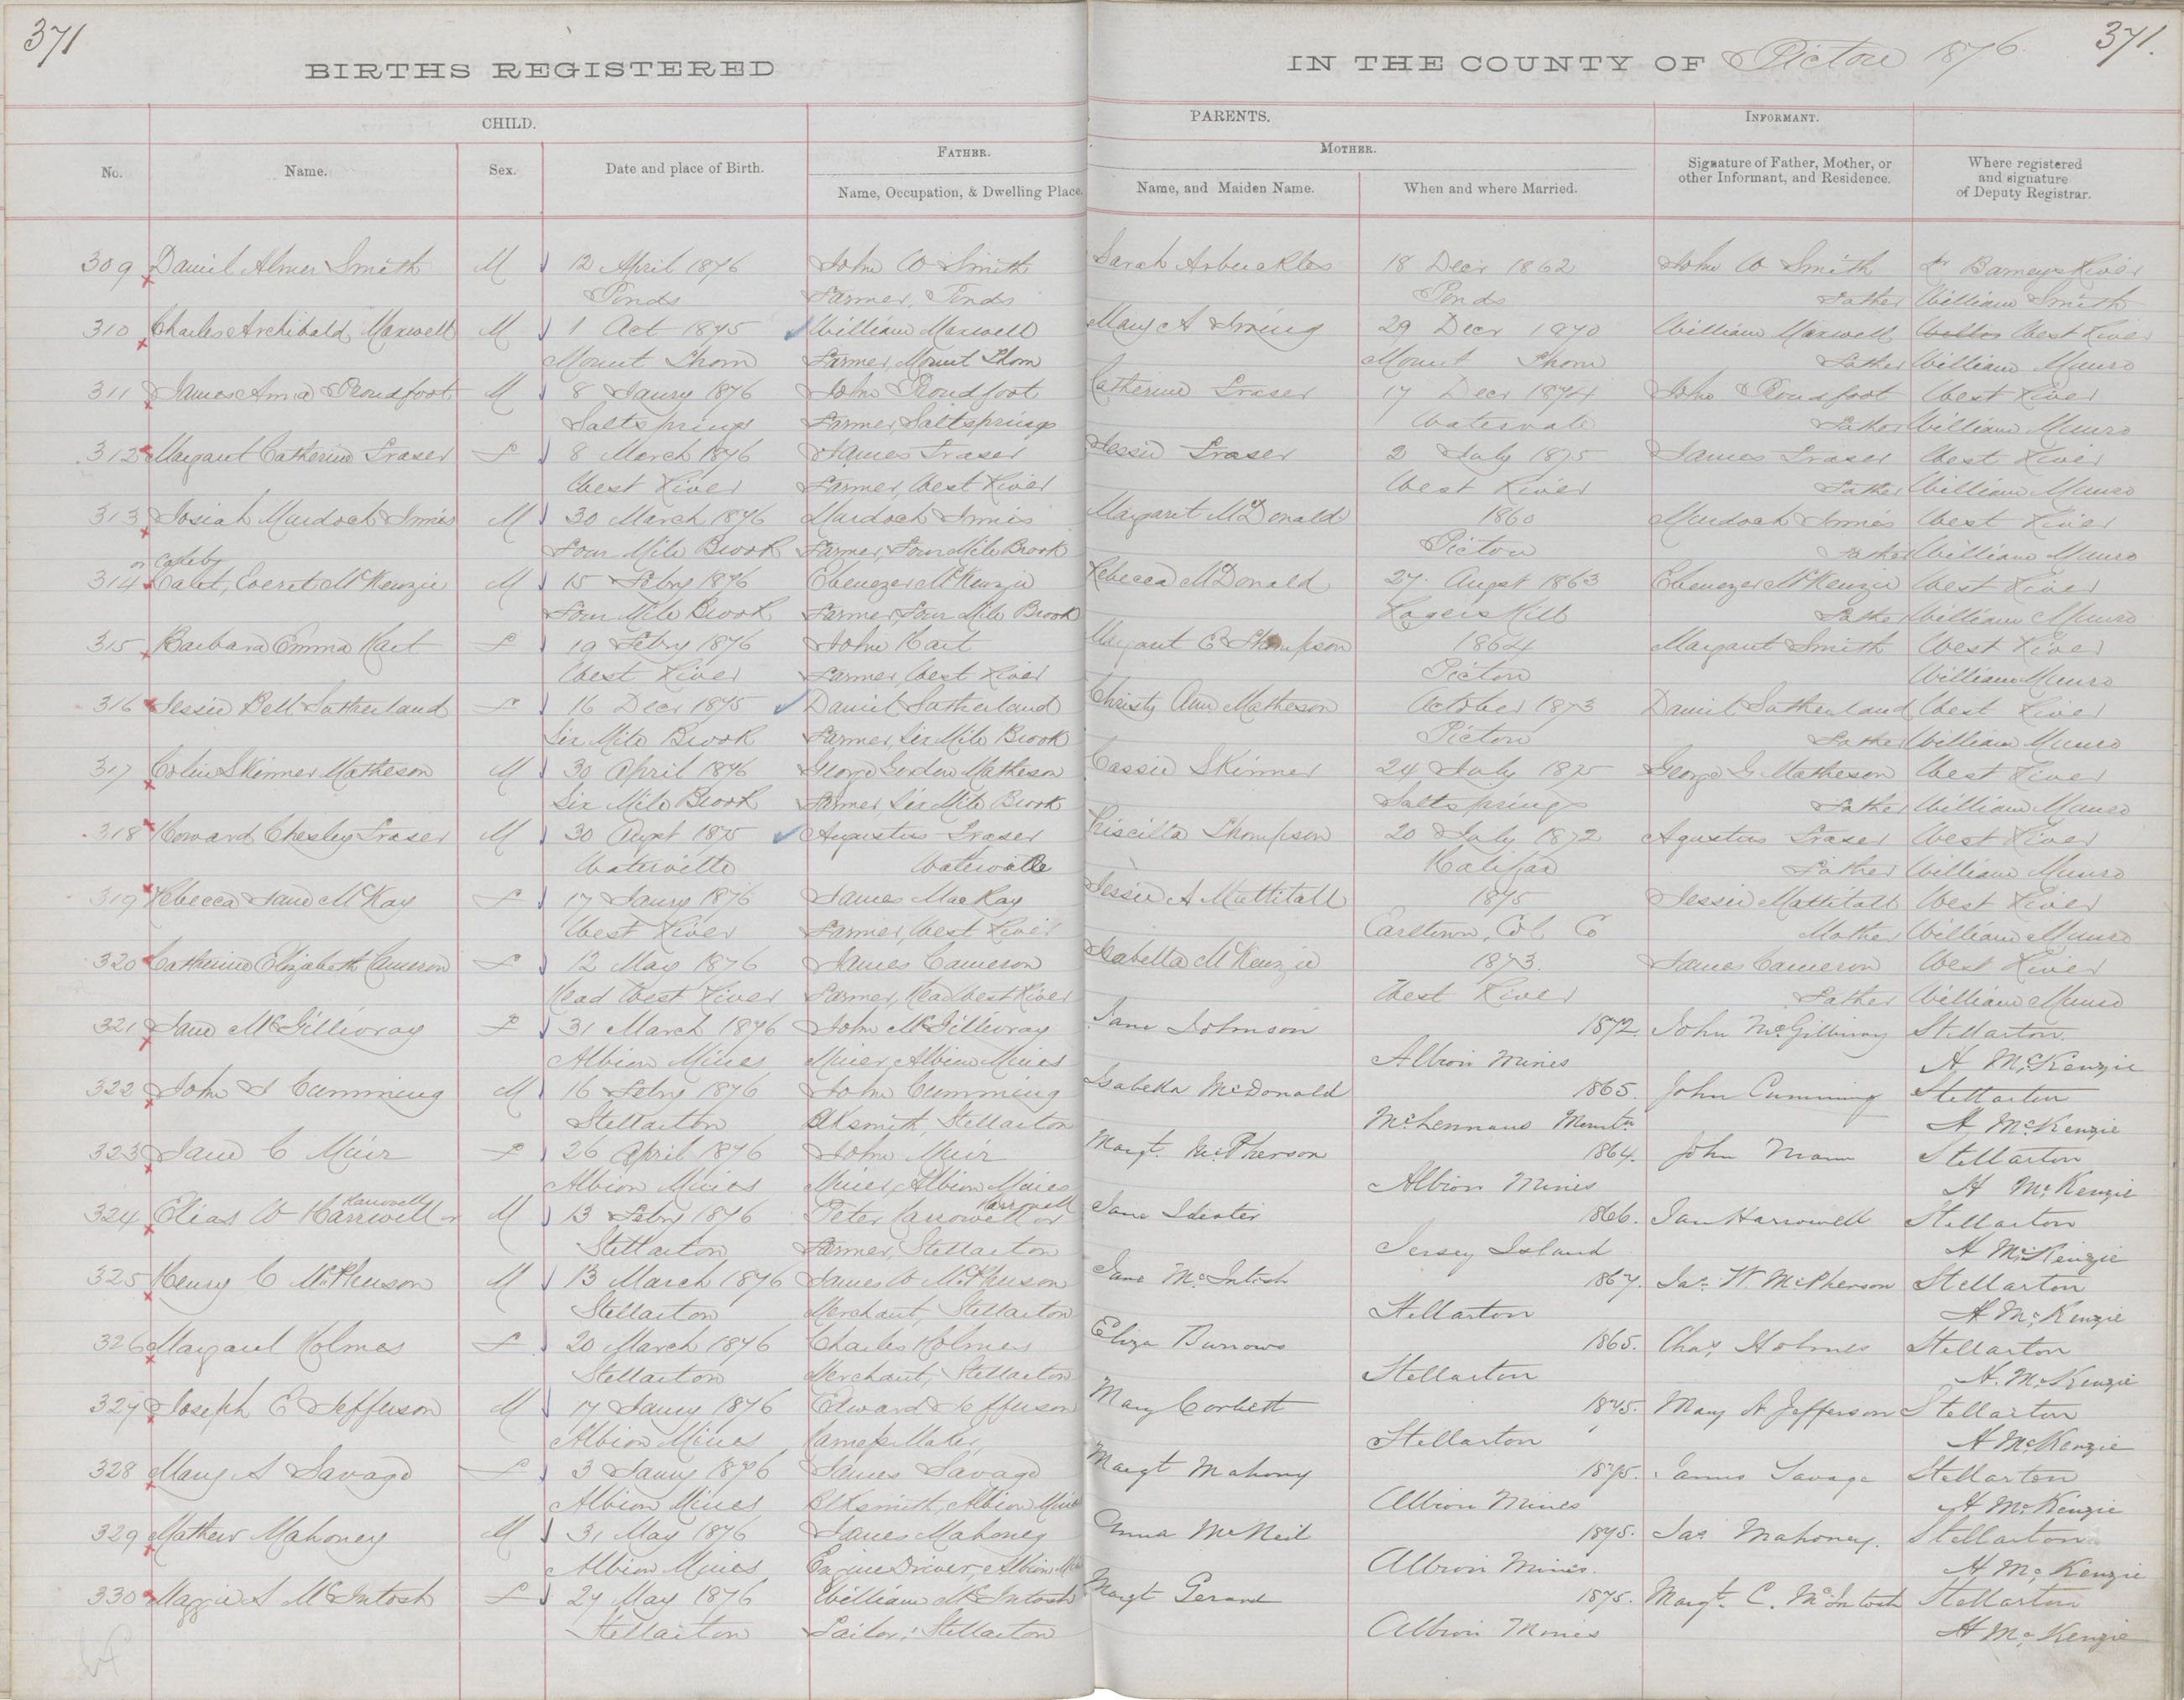 371
371.
BIRTHS REGISTERED
IN THE COUNTY OF Pictou 1876
CHILD.
PARENTS.
INFORMANT.
FATHER.
MOTHER.
No.
Name.
Sex.
Date and place of Birth.
Name, Occupation, & Dwelling Place.
Name, and Maiden Name.
When and where Married.
Signature of Father, Mother, or
other Informant, and Residence.
Where registered
and signature
of Deputy Registrar.
309 Daniel Almer Smith M 12 April 1876 John W Smith Sarah Arbuckles 18 Decr 1862 John W Smith Barneys River
Ponds Farmer, Ponds Ponds Father William Smith
310 Charles Archibald Maxwell M 1 Oct 1875 William Maxwell Mary A Irving 29 Decr 1870 William Maxwell West River
Mount Thom Farmer, Mount Thom Mount Thom Father William Munro
311 James Proudfoot M 8 Jany 1876 John Proudfoot Catherine Fraser 17 Decr 1874 John Proudfoot West River
Saltsprings Farmer, Saltsprings Watervale Father William Munro
312 Margaret Catherine Fraser F 8 March 1876 James Fraser Jessie Fraser 2 July 1875 James Fraser West River
West River Farmer, West River West River Father William Munro
313 Josiah Murdoch Innis M 30 March 1876 Murdoch Innis Margaret McDonald 1860 Murdoch Innis West River
Four Mile Brook Farmer, Four Mile Brook Pictou Father William Munro
or Caleby
314 Calet, Everet McKenzie M 15 Febry 1876 Ebenezer McKenzie Rebecca McDonald 27. Augst 1863 Ebenezer McKenzie West River
Four Mile Brook Farmer, Four Mile Brook Rogers Hill Father William Munro
315 Barbara Emma Hart F 19 Febry 1876 John Hart Margaret E Thompson 1864 Margaret Smith West River
West River Farmer, West River Pictou William Munro
316 Jessie Bell Sutherland F 16 Decr 1875 Daniel Sutherland Christy Ann Matheson October 1873 Daniel Sutherland West River
Six Mile Brook Farmer, Six Mile Brook Pictou Father William Munro
317 Colin Skinner Matheson M 30 April 1876 George Gordon Matheson Cassie Skinner 24 July 1875 George G Matheson West River
Six Mile Brook Farmer, Six Mile Brook Saltsprings Father William Munro
318 Howard Chesley Fraser M 30 Augst 1875 Augustus Fraser Priscilla Thompson 20 July 1872 Agustus Fraser West River
Waterville Waterville Halifax Father William Munro
319 Rebecca Jane McKay F 17 Jany 1876 James MacKay Jessie A Mattitall 1875 Jessie Mattitall West River
West River Farmer, West River Earltown, Col Co Mother William Munro
320 Catherine Elizabeth Cameron F 12 May 1876 James Cameron Isabella McKenzie 1873. James Cameron West River
Head West River Farmer, Head West River West River Father William Munro
321 Jane McGillivray F 31 March 1876 John McGillivray Jane Johnson 1872. John McGillivray Stellarton.
Albion Mines Miner, Albion Mines Albion Mines H McKenzie
322 John S Cumming M 16 Febry 1876 John Cumming Isabella McDonald 1865. John Cumming Stellarton
Stellarton Blksmith, Stellarton McLennans Mountn H McKenzie
323 Jane C Muir F 26 April 1876 John Muir Margt. McPherson 1864. John Stellarton
Albion Mines Miner, Albion Mines Albion Mines H McKenzie
Harrowell Harrowell
324 Elias W Harriwell or M 13 Febry 1876 Peter Harrowell or Jane 1866. Jane Harrowell Stellarton
Stellarton Farmer, Stellarton Jersey Island H McKenzie
325 Henry C McPherson M 13 March 1876 James W McPherson Jane McIntosh 1867. Jas. W. McPherson Stellarton
Stellarton Merchant, Stellarton Stellarton H McKenzie
326 Margaret Holmes F 20 March 1876 Charles Holmes Eliza Burrows 1865. Chas. Holmes Stellarton
Stellarton Merchant, Stellarton Stellarton H. McKenzie
327 Joseph E Jefferson M 17 Jany 1876 Edward Jefferson Mary Corbett 1875. Mary A Jefferson Stellarton
Albion Mines Harness Maker, Stellarton H McKenzie
328 Mary A Savage F 3 Jany 1876 James Savage Margt Mahony 1875. James Savage Stellarton
Albion Mines Blksmith, Albion Mines Albion Mines H McKenzie
329 Mathew Mahoney M 31 May 1876 James Mahoney Anna McNeil 1875. Jas Mahoney. Stellarton
Albion Mines Engine Driver, Albion Mines Albion Mines. H McKenzie
330 Maggie A McIntosh F 27 May 1876 William McIntosh Margt Gerard 1875. Margt. C. McIntosh Stellarton
Stellarton Tailor, Stellarton Albion Mines H McKenzie